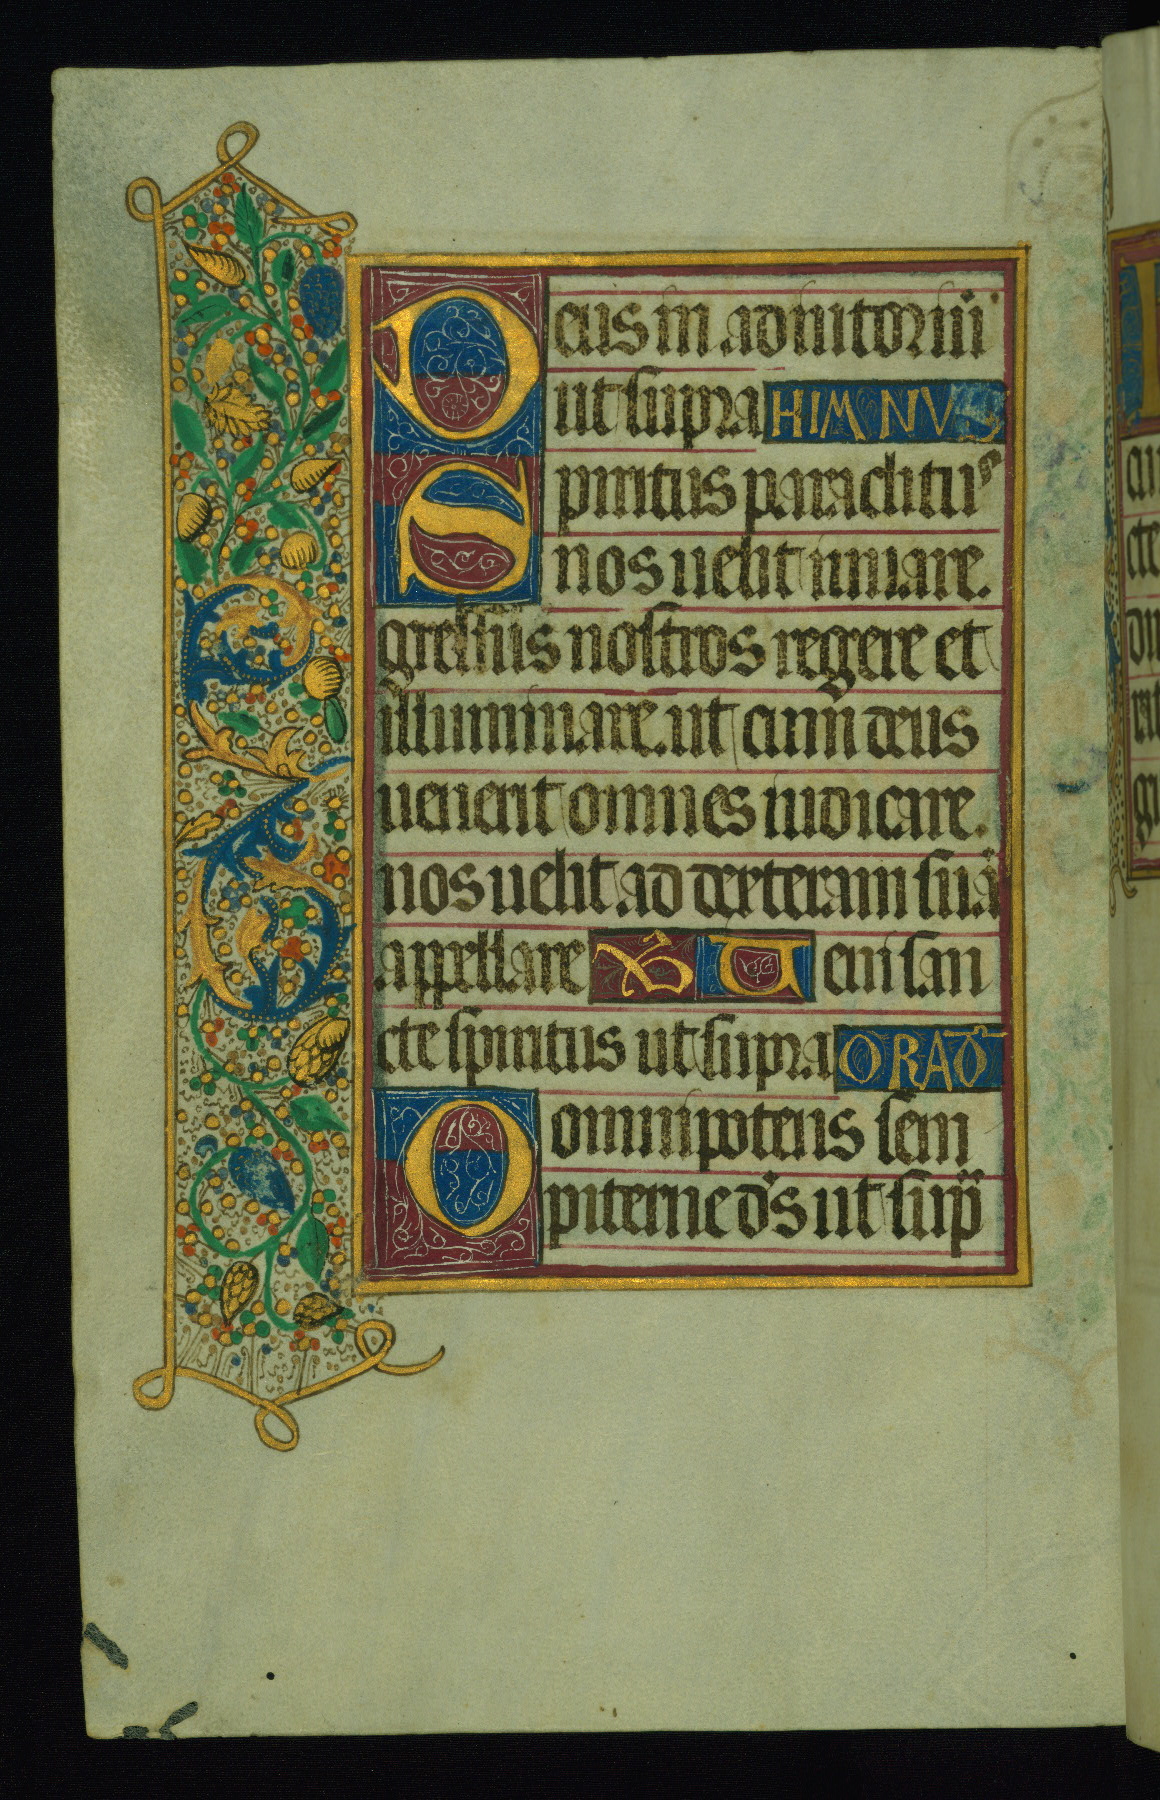 Deus in adiutoriū
ut supra HIMNVS
Spiritus paraclitus
nos uelit iuuare.
gressus nostros regere et
illuminare. ut cum deus
uenerit omnes iudicare.
nos uelit ad dexteram suā
appellare Ueni san
cte spiritus ut supra ORAŌ
Omnipotens sem
piterne ds ut sup